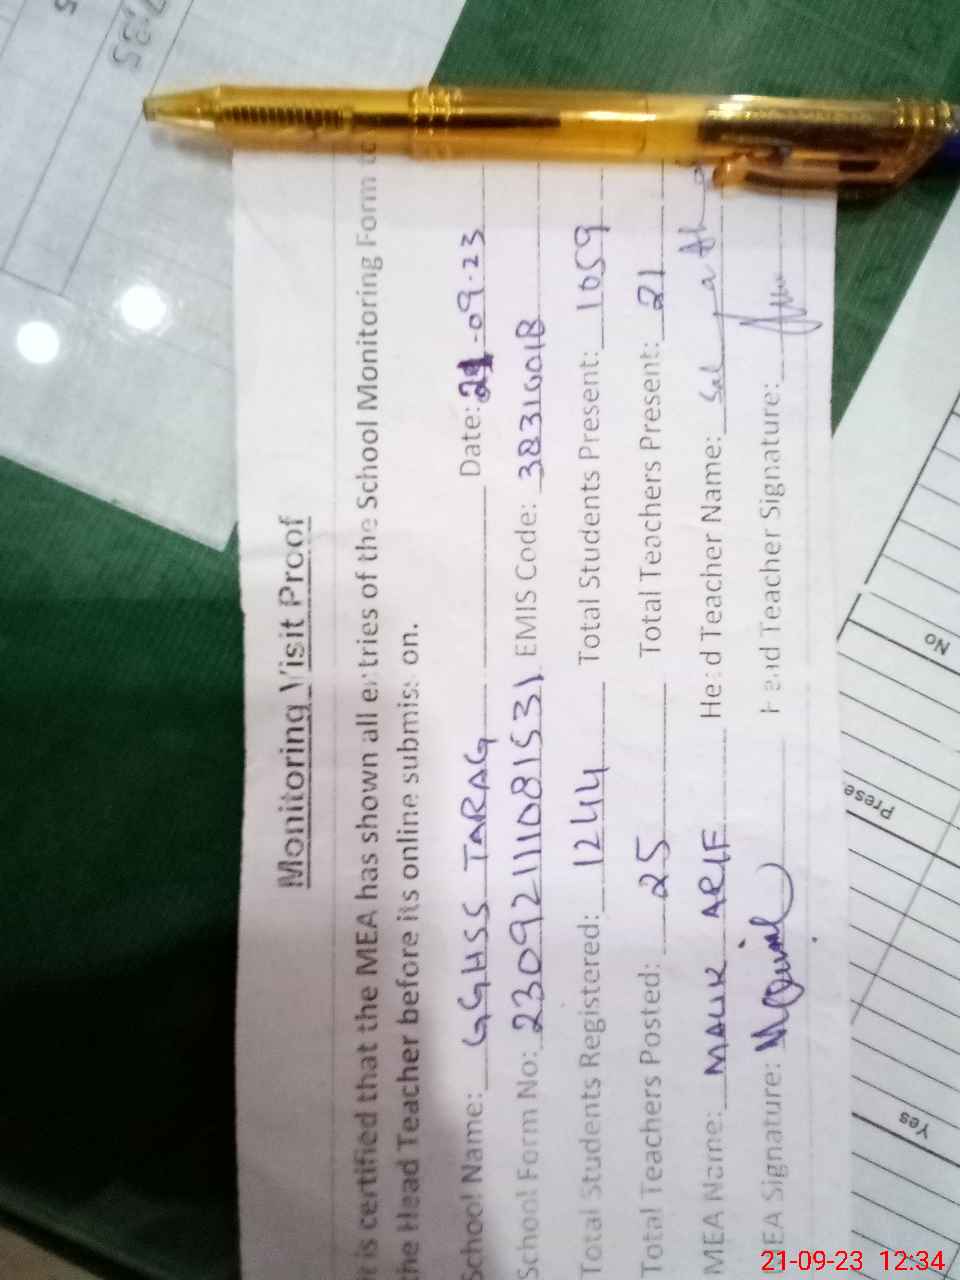 Monitoring Visit Proof
is certified that the MEA has shown all entries of the School Monitoring Form to
the Head Teacher before its online submission.
School Name: GGHSS TARAG Date: 21-09-23
School Form No: 230921110815531 EMIS Code: 38310018
Total Students Registered: 1244 Total Students Present: 1059
Total Teachers Posted: 25 Total Teachers Present: 21
MEA Name: MALIK ARIF Head Teacher Name:
MEA Signature: Head Teacher Signature:
No
Prese
Yes
21-09-23 12:34